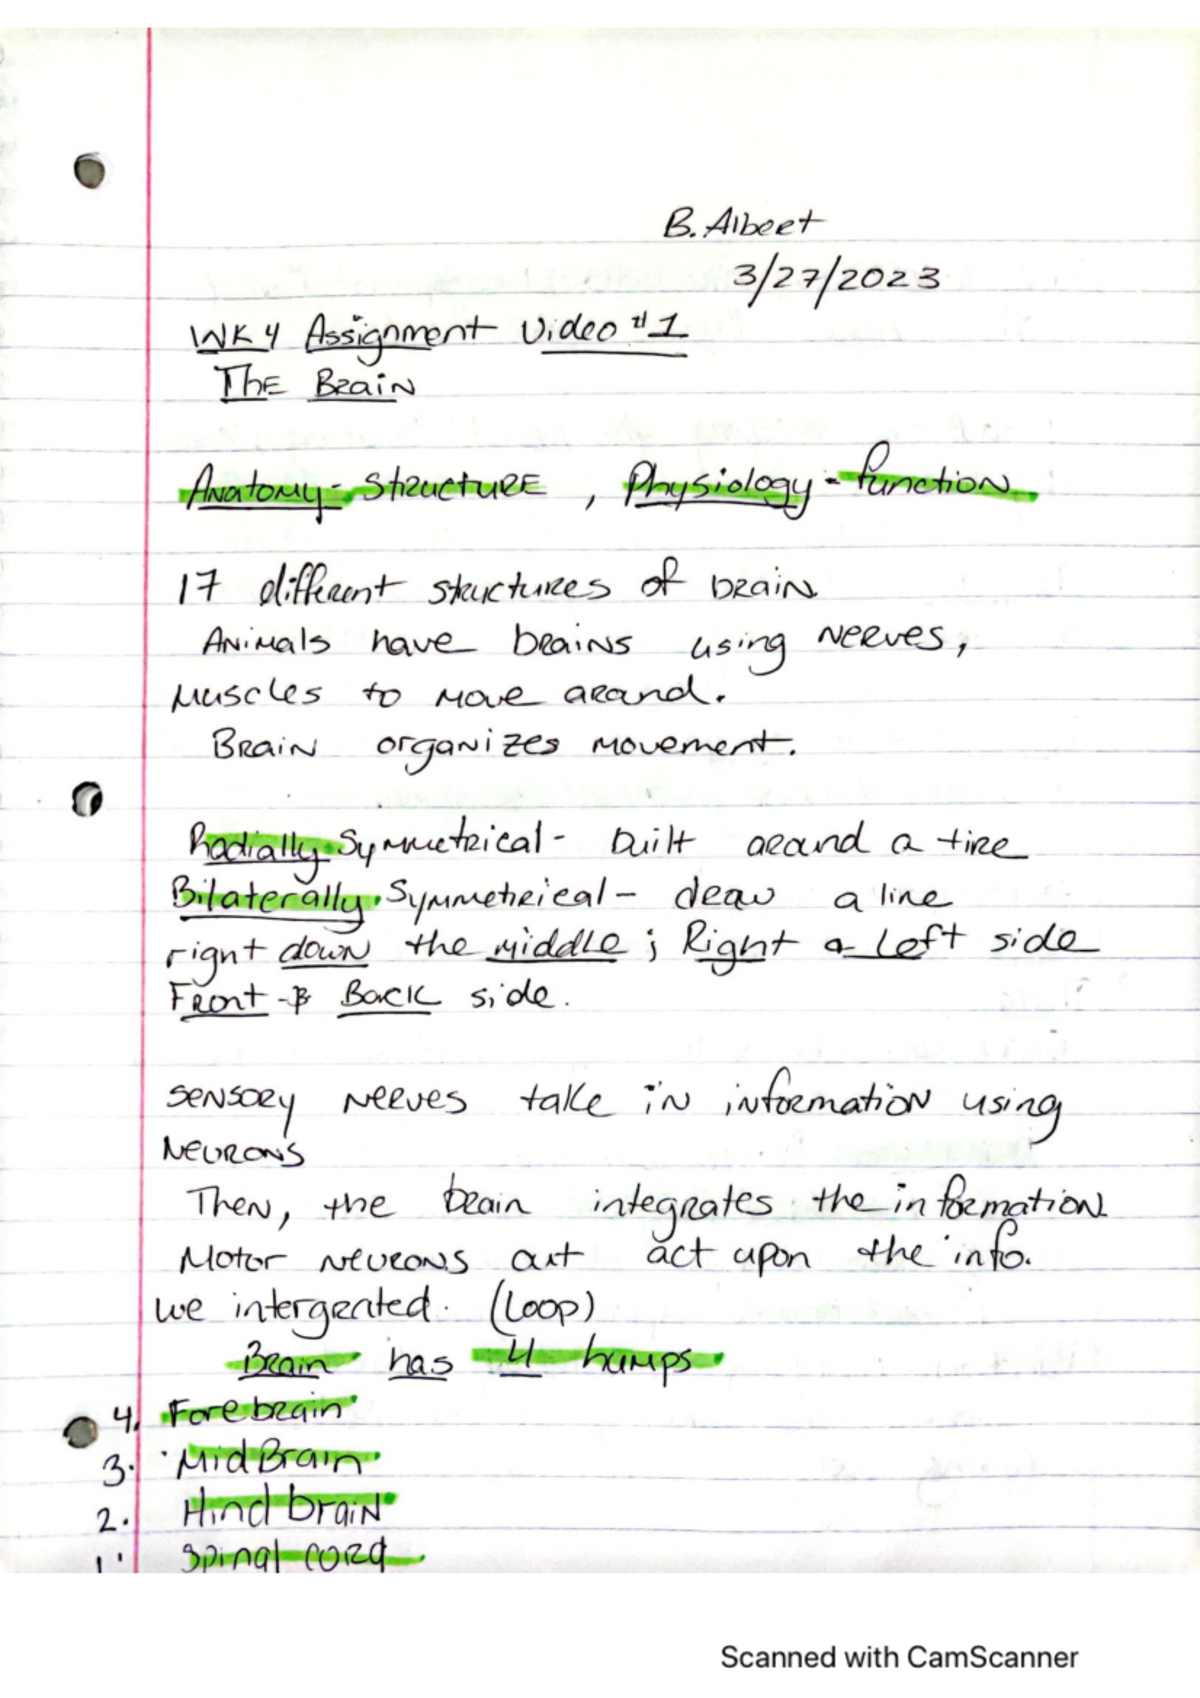 B. Albert
3/27/2023
WK 4 Assignment Video #1
The Brain
Anatomy - Structure, Physiology - function
17 different structures of brain
Animals have brains using nerves,
Muscles to move around.
Brain organizes movement.
Radially Symmetrical - built around a tire
Bilaterally Symmetrical - draw a line
right down the middle; Right & Left side
Front & Back side.
Sensory nerves take in information using
Neurons
Then, the brain integrates the information
Motor neurons out act upon the info.
we intergrated. (Loop)
Brain has 4 bumps
4. Forebrain
3. MidBrain
2. Hindbrain
1. Spinal cord
Scanned with CamScanner